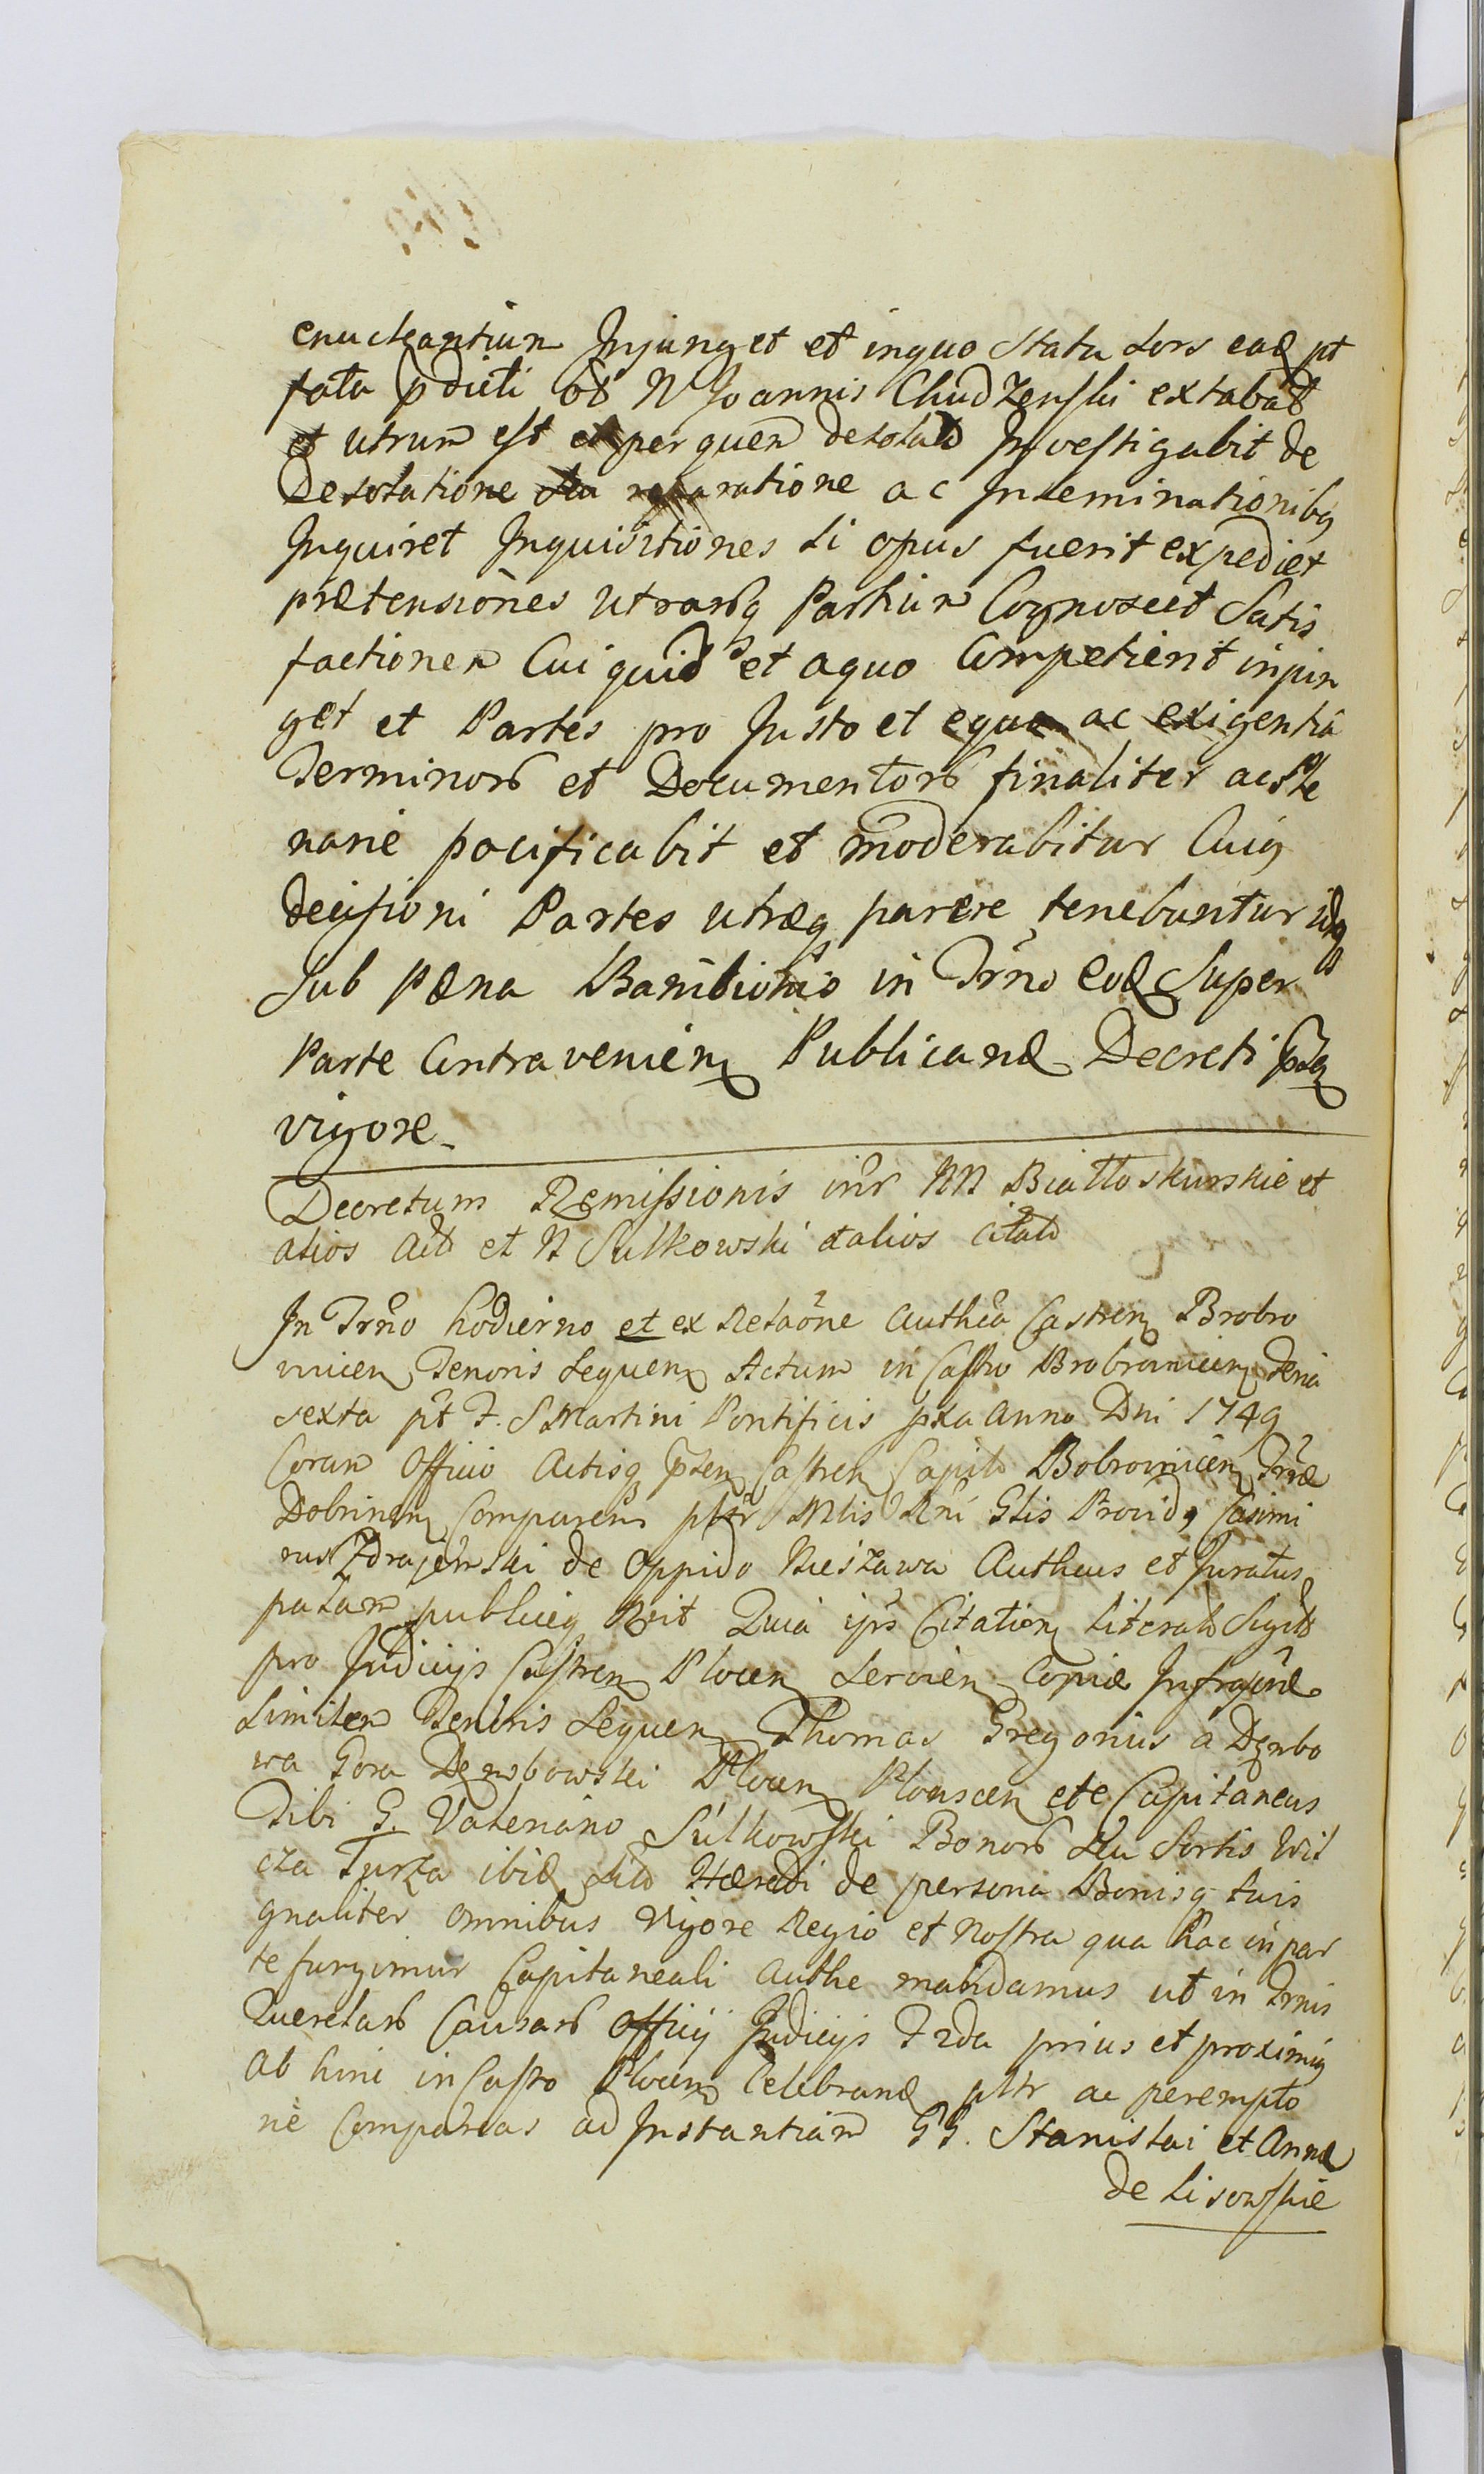 enucleantium Injunget et in quo Statu Sors ead pt
fata pdicti ol N Joannis Chudzenski extabat
et utrum est et per quem desolad Investigabit de
Desolatione seu reparatione ac Inseminationibq
Inquiret Inquisitiones si opus fuerit expediet
prætensiones utrarq Partium Cognoscet Satis
factionem Cui quid et a quo Competierit inpin
get et Partes pro Justo et equo ac exigentia
Terminor et Documentor finaliter ac Ple
narie pacificabit et moderabitur Cuiq
decisioni Partes utræq parere tenebuntur idq
Sub pæna Bannitionis in Trno eod Super
Parte Contravenien Publicand Decreti psq
vigore
Decretum Remissionis intr NN Białłoskurskie et
alios Act et N Sulkowski et alios Citato
In Trno hodierno et ex Relaone Authca Castren Brobro
nicen Tenoris Sequen Actum in Castro Brobronicen Feria
sexta pt F. S Martini Pontificis pxa Anno Dni 1749
Coram Officio Actisq psen Castren Capit Bobrovnicen Træ
Dobrinen Comparens pltr Mlis Rni Glis Providq Casimi
rus Zdrajewski de Oppido Nieszawa Autheus et Juratus
palam publiceq Rcit Quia ips Citation literal Sigill
pro Judicijs Castren Plocen Servien Copiæ Infraserte
Similem Tenoris Sequen Thomas Gregorius a Dembo
wa Gora Dembowski Plocen Plonscen etc Capitaneus
Tibi G. Valeriano Sulkowski Bonor seu Sortis Wil
cza Turza ibid Sito Hæredi de persona Bonisq tuis
gnaliter omnibus Vigore Regio et Nostra qua hac in par
te fungimur Capitaneali Authe mandamus ut in Trnis
Querelar Causar Officij Judicijs Frda prius et proximiq
ab hinc in Castro Plocen Celebrand pltr ac perempto
rie Compareas ad Instantiam GG. Stanislai et Annæ
de Lisowskie